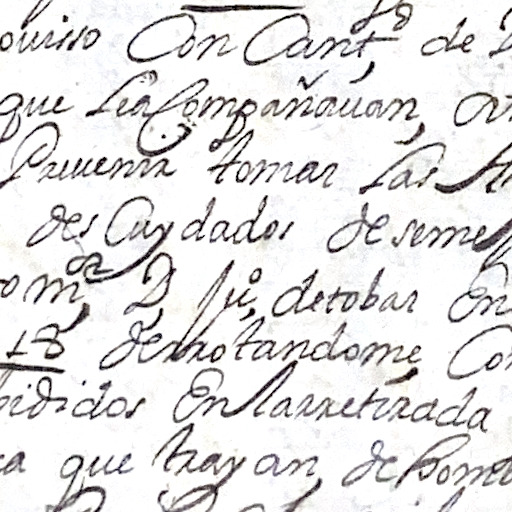 ouisso Con Cant.d de
que LeaCompañauan,
Preuenir tomar Las
desCuydados deseme
om.or D, Ju.o detobar En
18 derrotandome, Con
pididos EnLarretirada
ca que trayan, de hom